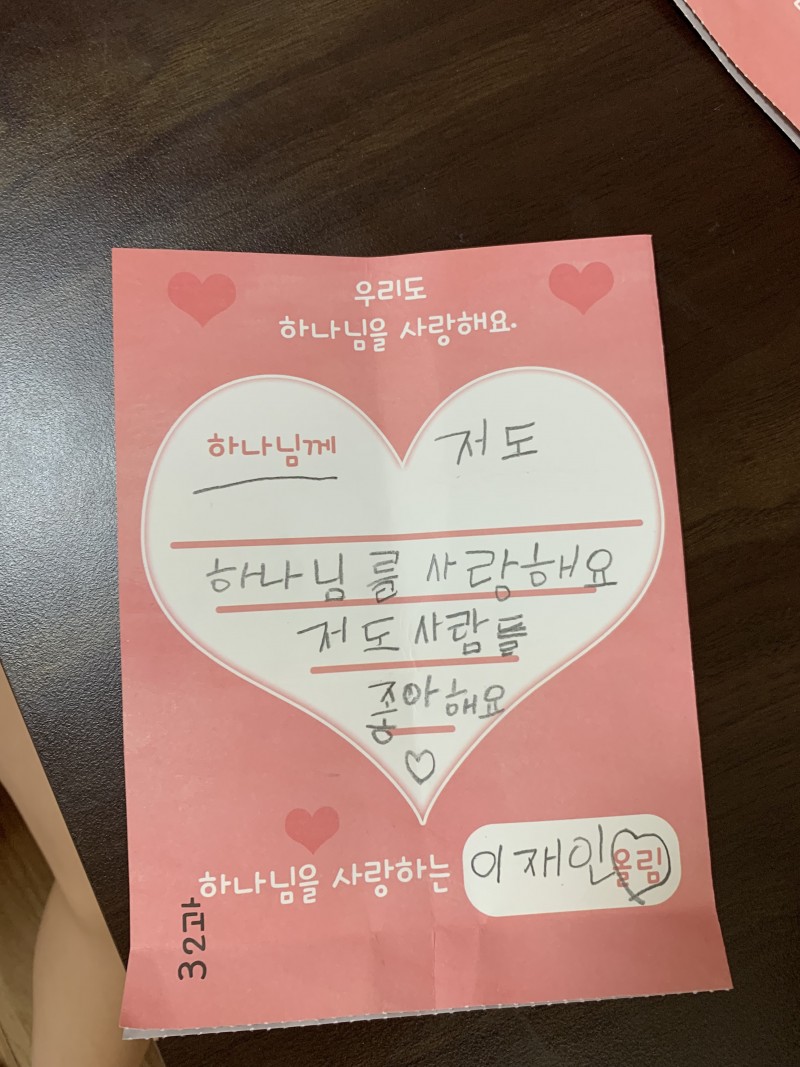 우리도
하나님을 사랑해요.
하나님께 저도
하나님를 사랑해요
저도 사람들
좋아해요
하나님을 사랑하는 이재인올림
32과